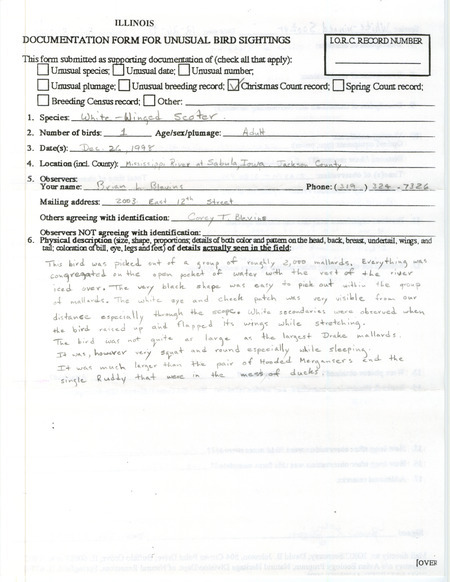 ILLINOIS
DOCUMENTATION FORM FOR UNUSUAL BIRD SIGHTINGS
I.O.R.C. RECORD NUMBER
This form submitted as supporting documentation of (check all that apply):
Unusual species; Unusual date; Unusual number;
Unusual plumage; Unusual breeding record; Christmas Count record; Spring Count record;
Breeding Census record; Other:
1. Species: White-Winged Scoter.
2. Number of birds: 1 Age/sex/plumage: Adult
3. Date(s): Dec. 26, 1998
4. Location (incl. County): Mississippi River at Sabula, Iowa. Jackson County
5. Observers:
Your name: Brian L. Blevins Phone: (319) 324-7326
Mailing address: 2003 East 12th Street
Others agreeing with identification: Corey T. Blevins
Observers NOT agreeing with identification:
6. Physical description (size, shape, proportions; details of both color and pattern on the head, back, breast, undertail, wings, and
tail; coloration of bill, eye, legs and feet) of details actually seen in the field:
This bird was picked out of a group of roughly 2,000 mallards. Everything was
congregated on the open pocket of water with the rest of the river
iced over. The very black shape was easy to pick out within the group
of mallards. The white eye and cheek patch was very visible from our
distance especially through the scope. White secondaries were observed when
the bird raised up and flapped its wings while stretching.
The bird was not quite as large as the largest Drake mallards.
It was, however very squat and round especially while sleeping.
It was much larger than the pair of Hooded Mergansers and the
single Ruddy that were in the mess of ducks.
[OVER